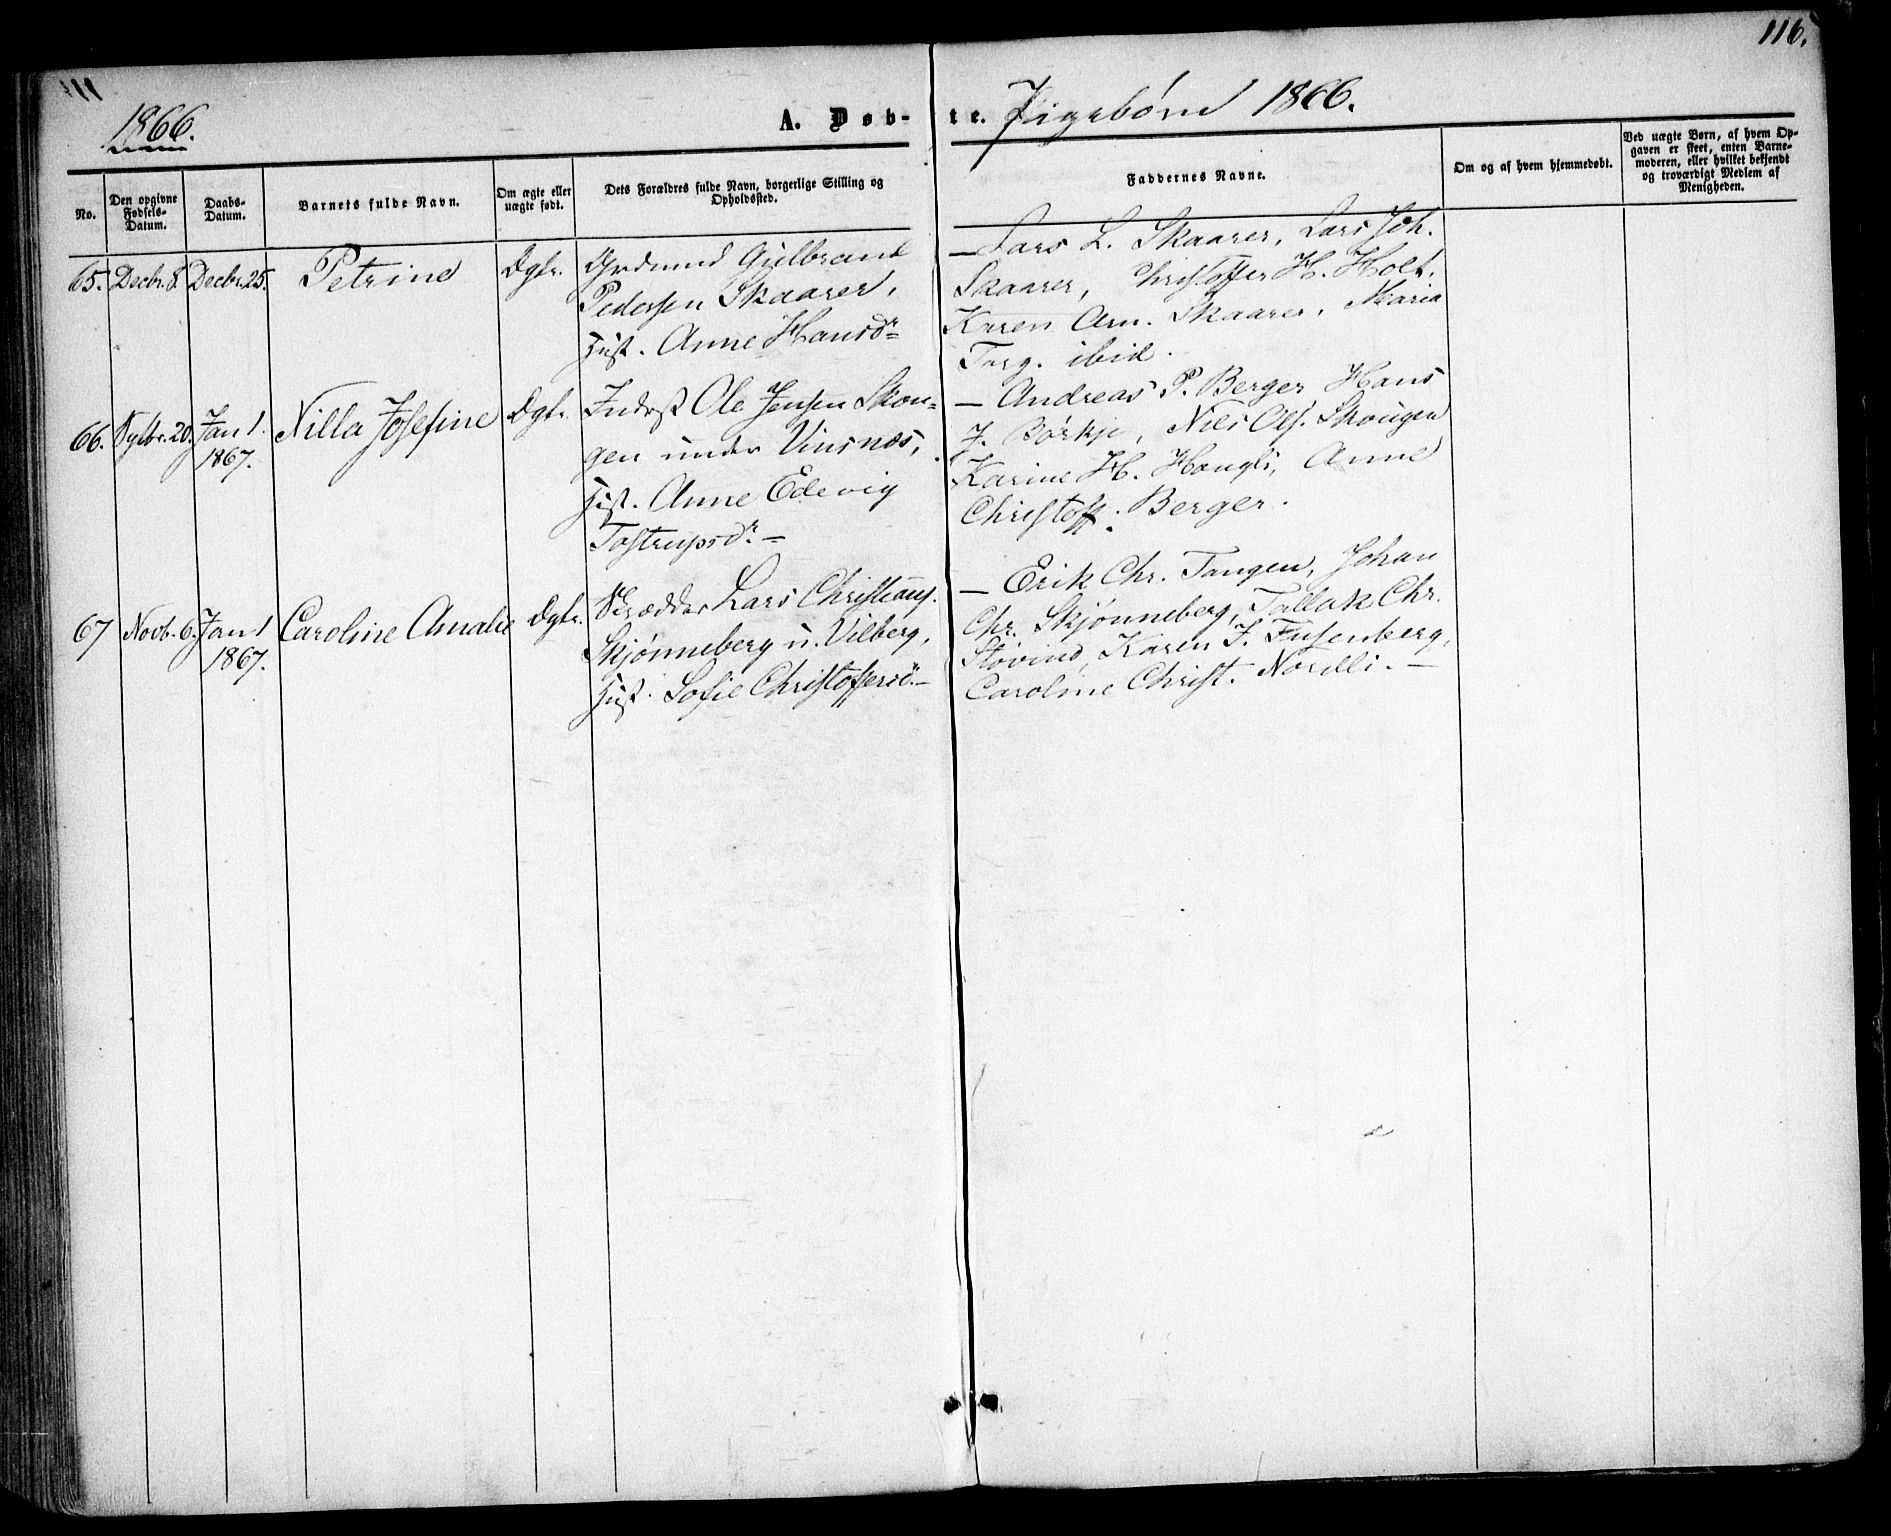 116.
1866.
A. Døb-
te. Pigebørn 1866.
No.
Den opgivne
Fødsels-
Datum.
Daabs-
Datum.
Barnets fulde Navn.
Om ægte eller
uægte født.
Dets Forældres fulde Navn, borgerlige Stilling og
Opholdssted.
Faddernes Navne.
Om og af hvem hjemmedøbt.
Ved uægte Børn, af hvem Op-
gaven er skeet, enten Barne-
moderen, eller hvilket bekjendt
og troværdigt Medlem af
Menigheden.
65. Decbr. 8. Decbr. 25. Petrine
Ægte.
Gulbrand
Pedersen Skaarer,
Hust. Anne Hansdr
— Lars L. Skaarer, Lars Joh.
Skaarer, Christoffer H. Holt.
Karen Arn. Skaarer, Maria
Torg. ibid.
66. 20. Jan 1.
1867.
Nilla Josefine
Ægte.
Inderst Ole Jensen Skou-
gen under Vinsnæs,
Hust. Anne Edevig
Tostrupsdr. —
— Andreas P. Berger Hans
J. Børkje, Niels Ols. Skougen
Karine H. Haugli, Anne
Christoff. Berger.
67 Novb. 6. Jan 1
1867.
Caroline Amalie
Ægte.
Skrædder Lars Christians.
Skjønneberg u. Vilberg,
Hust. Sofie Christoffersd. —
— Erik Chr. Tangen, Johan
Chr. Skjønneberg, Tallak Chr.
Støvind, Karen J. Fusenberg,
Caroline Christ. Nordli. —